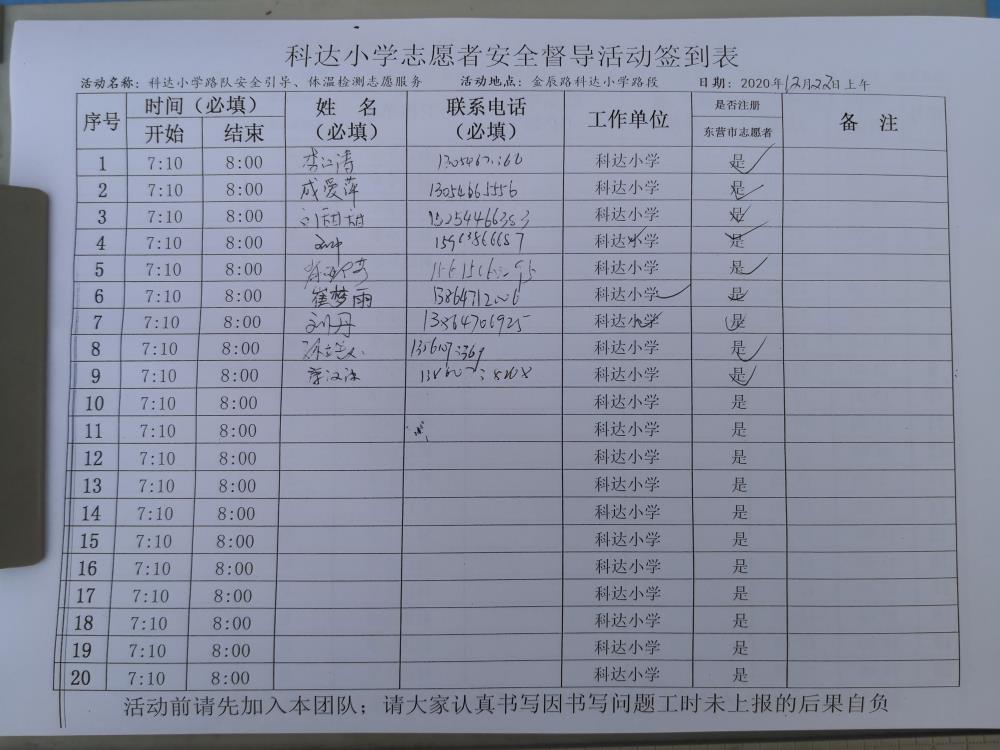 科达小学志愿者安全督导活动签到表
活动名称：科达小学路队安全引导、体温检测志愿服务 活动地点：金辰路科达小学路段 日期：2020年12月22日上午
序号 时间（必填） 姓 名（必填） 联系电话（必填） 工作单位 是否注册东营市志愿者 备 注
开始 结束
1 7:10 8:00 李江涛 科达小学 是
2 7:10 8:00 成爱萍 13054665556 科达小学 是
3 7:10 8:00 刘甜甜 15254466353 科达小学 是
4 7:10 8:00 科达小学 是
5 7:10 8:00 科达小学 是
6 7:10 8:00 崔梦雨 13864712006 科达小学 是
7 7:10 8:00 刘丹 13864706925 科达小学 是
8 7:10 8:00 科达小学 是
9 7:10 8:00 科达小学 是
10 7:10 8:00 科达小学 是
11 7:10 8:00 科达小学 是
12 7:10 8:00 科达小学 是
13 7:10 8:00 科达小学 是
14 7:10 8:00 科达小学 是
15 7:10 8:00 科达小学 是
16 7:10 8:00 科达小学 是
17 7:10 8:00 科达小学 是
18 7:10 8:00 科达小学 是
19 7:10 8:00 科达小学 是
20 7:10 8:00 科达小学 是
活动前请先加入本团队；请大家认真书写因书写问题工时未上报的后果自负